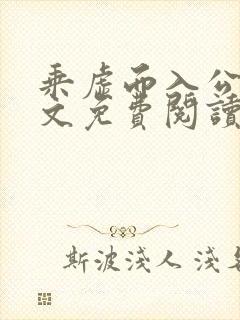 乘虛而入公
文免費閱讀
斯波淺人 淺